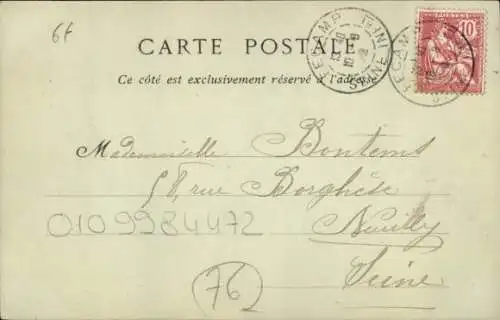 6f
CARTE POSTALE
Ce côté est exclusivement réservé à l'adresse
FECAMP
SEINE INFRE
FECAMP
POSTES
10
Mademoiselle Bontems
58, rue Borghèse
0109984472
Neuilly
Seine
76